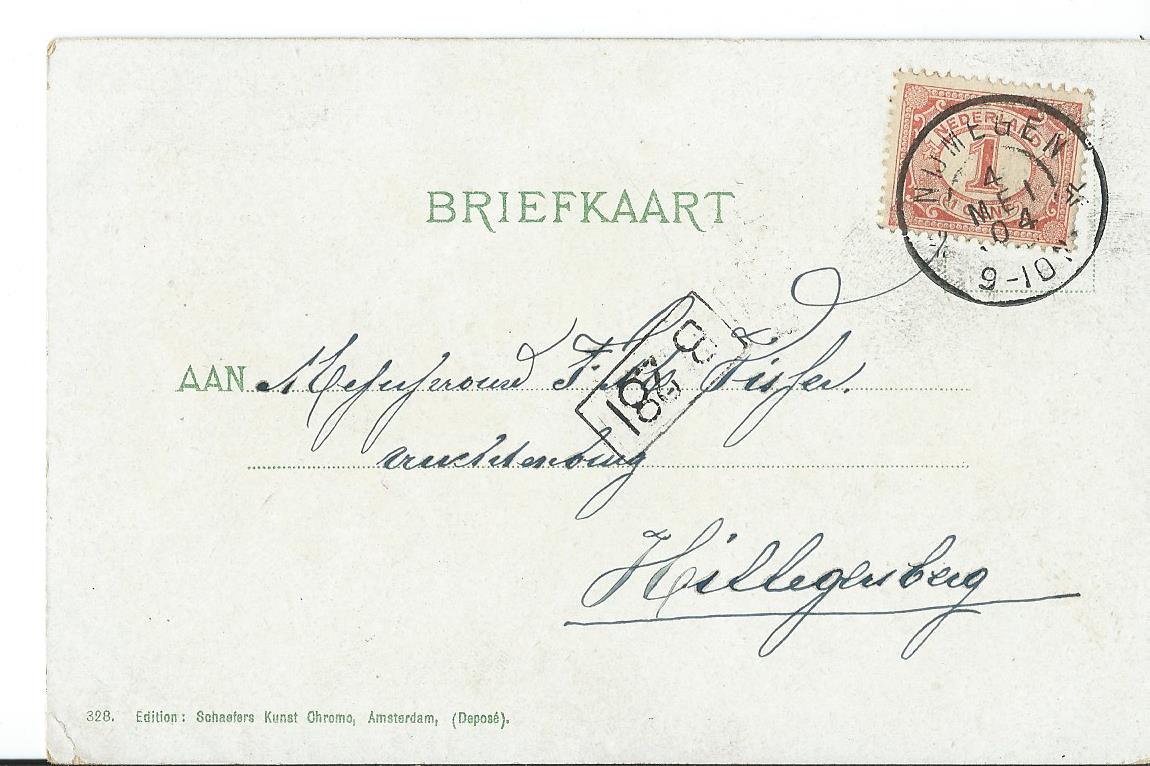 NEDERLAND
1
NIJMEGEN
4
MEI
04
9-10
BRIEFKAART
AAN Mejufvrouw F. Visser.
Hillegersberg
328. Edition: Schaefers Kunst Chromo, Amsterdam, (Deposé).